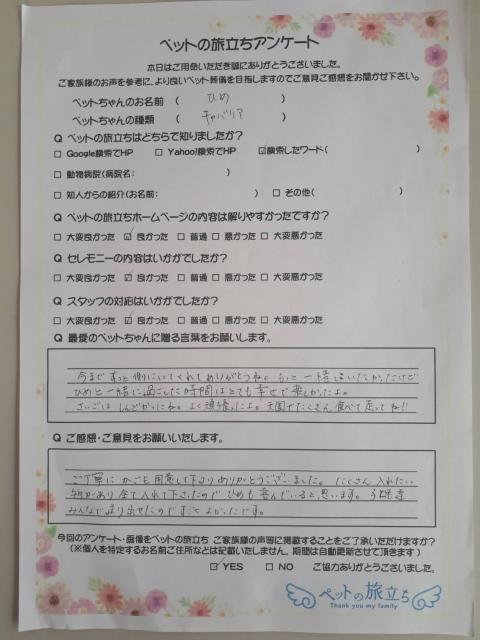 ペットの旅立ちアンケート
本日はご用命いただき誠にありがとうございました。
ご家族様のお声を参考に、より良いペット葬儀を目指しますのでご意見ご感想をお聞かせ下さい。
ペットちゃんのお名前 ( ひめ )
ペットちゃんの種類 ( キャバリア )
Q ペットの旅立ちはどちらで知りましたか?
□ Google検索でHP □ Yahoo!検索でHP ☑検索したワード( )
□ 動物病院(病院名: )
□ 知人からの紹介(お名前: ) □ その他( )
Q ペットの旅立ちホームページの内容は解りやすかったですか?
□ 大変良かった ☑ 良かった □ 普通 □ 悪かった □ 大変悪かった
Q セレモニーの内容はいかがでしたか?
□ 大変良かった ☑ 良かった □ 普通 □ 悪かった □ 大変悪かった
Q スタッフの対応はいかがでしたか?
□ 大変良かった ☑ 良かった □ 普通 □ 悪かった □ 大変悪かった
Q 最愛のペットちゃんに贈る言葉をお願いします。
今まで ずっと側にいてくれてありがとうね。もっと一緒にいたかったけど
ひめと一緒に過ごした時間はとても幸せで楽しかったよ。
さいごは しんどかったね。よく頑張ったよ。天国でたくさん食べて走ってね!!
Q ご感想・ご意見をお願いいたします。
ご丁寧に かごも用意して下さりありがとうございました。たくさん入れたい
物があり全て入れて下さったので ひめも喜んでいると思います。
みんなで送り出せたのですごくよかったです。
今回のアンケート・画像をペットの旅立ち ご家族様の声等に掲載することをご了承いただけますか?
(※個人を特定するお名前ご住所などは記載いたしません。期間は自動更新させて頂きます)
☑ YES □ NO ご協力ありがとうございました。
ペットの旅立ち
Thank you my family